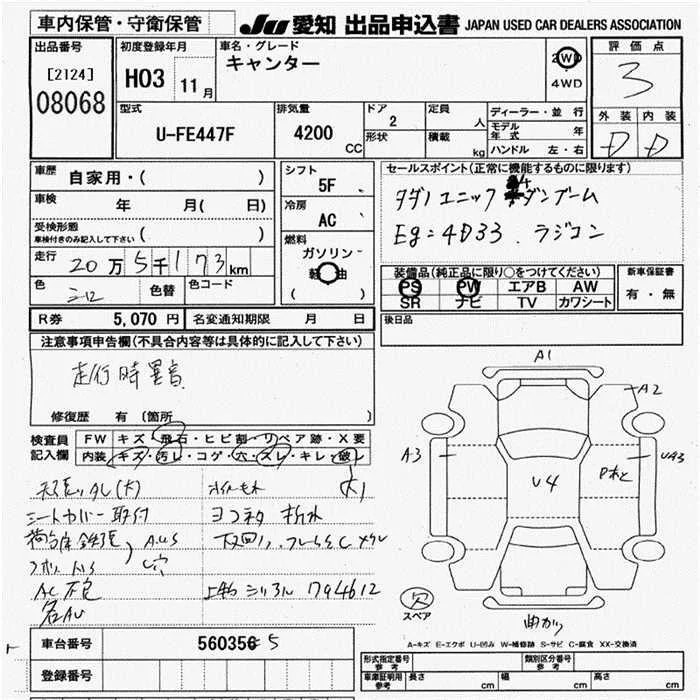 車内保管・守衛保管
JU 愛知 出品申込書 JAPAN USED CAR DEALERS ASSOCIATION
出品番号
[2124]
08068
初度登録年月
H03 11月
車名・グレード
キャンター
2WD
4WD
評価点
3
外装 内装
D D
型式
U-FE447F
排気量
4200 CC
ドア
2
形状
定員
人
積載
kg
ディーラー・並行
モデル年式 年
ハンドル 左・右
車歴
自家用・( )
車検
年 月( 日)
受検形態
車検付きのみ記入して下さい ( )
走行 20万5千173km
色 シロ
色替
色コード
シフト
5F
冷房
AC
燃料
ガソリン
軽油
( )
セールスポイント(正常に機能するものに限ります)
タダノユニック 4ダンブーム
Eg=4D33. ラジコン
装備品(純正品に限り○をつけてください)
PS PW エアB AW
SR ナビ TV カワシート
新車保証書
有・無
R券 5,070円 名変通知期限 月 日
後日品
注意事項申告欄(不具合内容等は具体的に記入して下さい)
走行時異音
修復歴 有(箇所 )
検査員記入欄
FW キズ・飛石・ヒビ割・リペア跡・X要
内装 キズ・汚レ・コゲ・穴・スレ・キレ・破レ
大
シートカバー取付
AUS
穴
AC不良
下回リ、フレームSCメクレ
上物シリアル 794612
A1
A2
A3
UA3
U4
欠
スペア
曲がり
A-キズ E-エクボ U-凹み W-補修跡 S-サビ C-腐食 XX-交換済
車台番号
560356 5
登録番号
形式指定番号
参考
類別区分番号
参考
車庫証明用参考 長さ cm 幅 cm 高さ cm